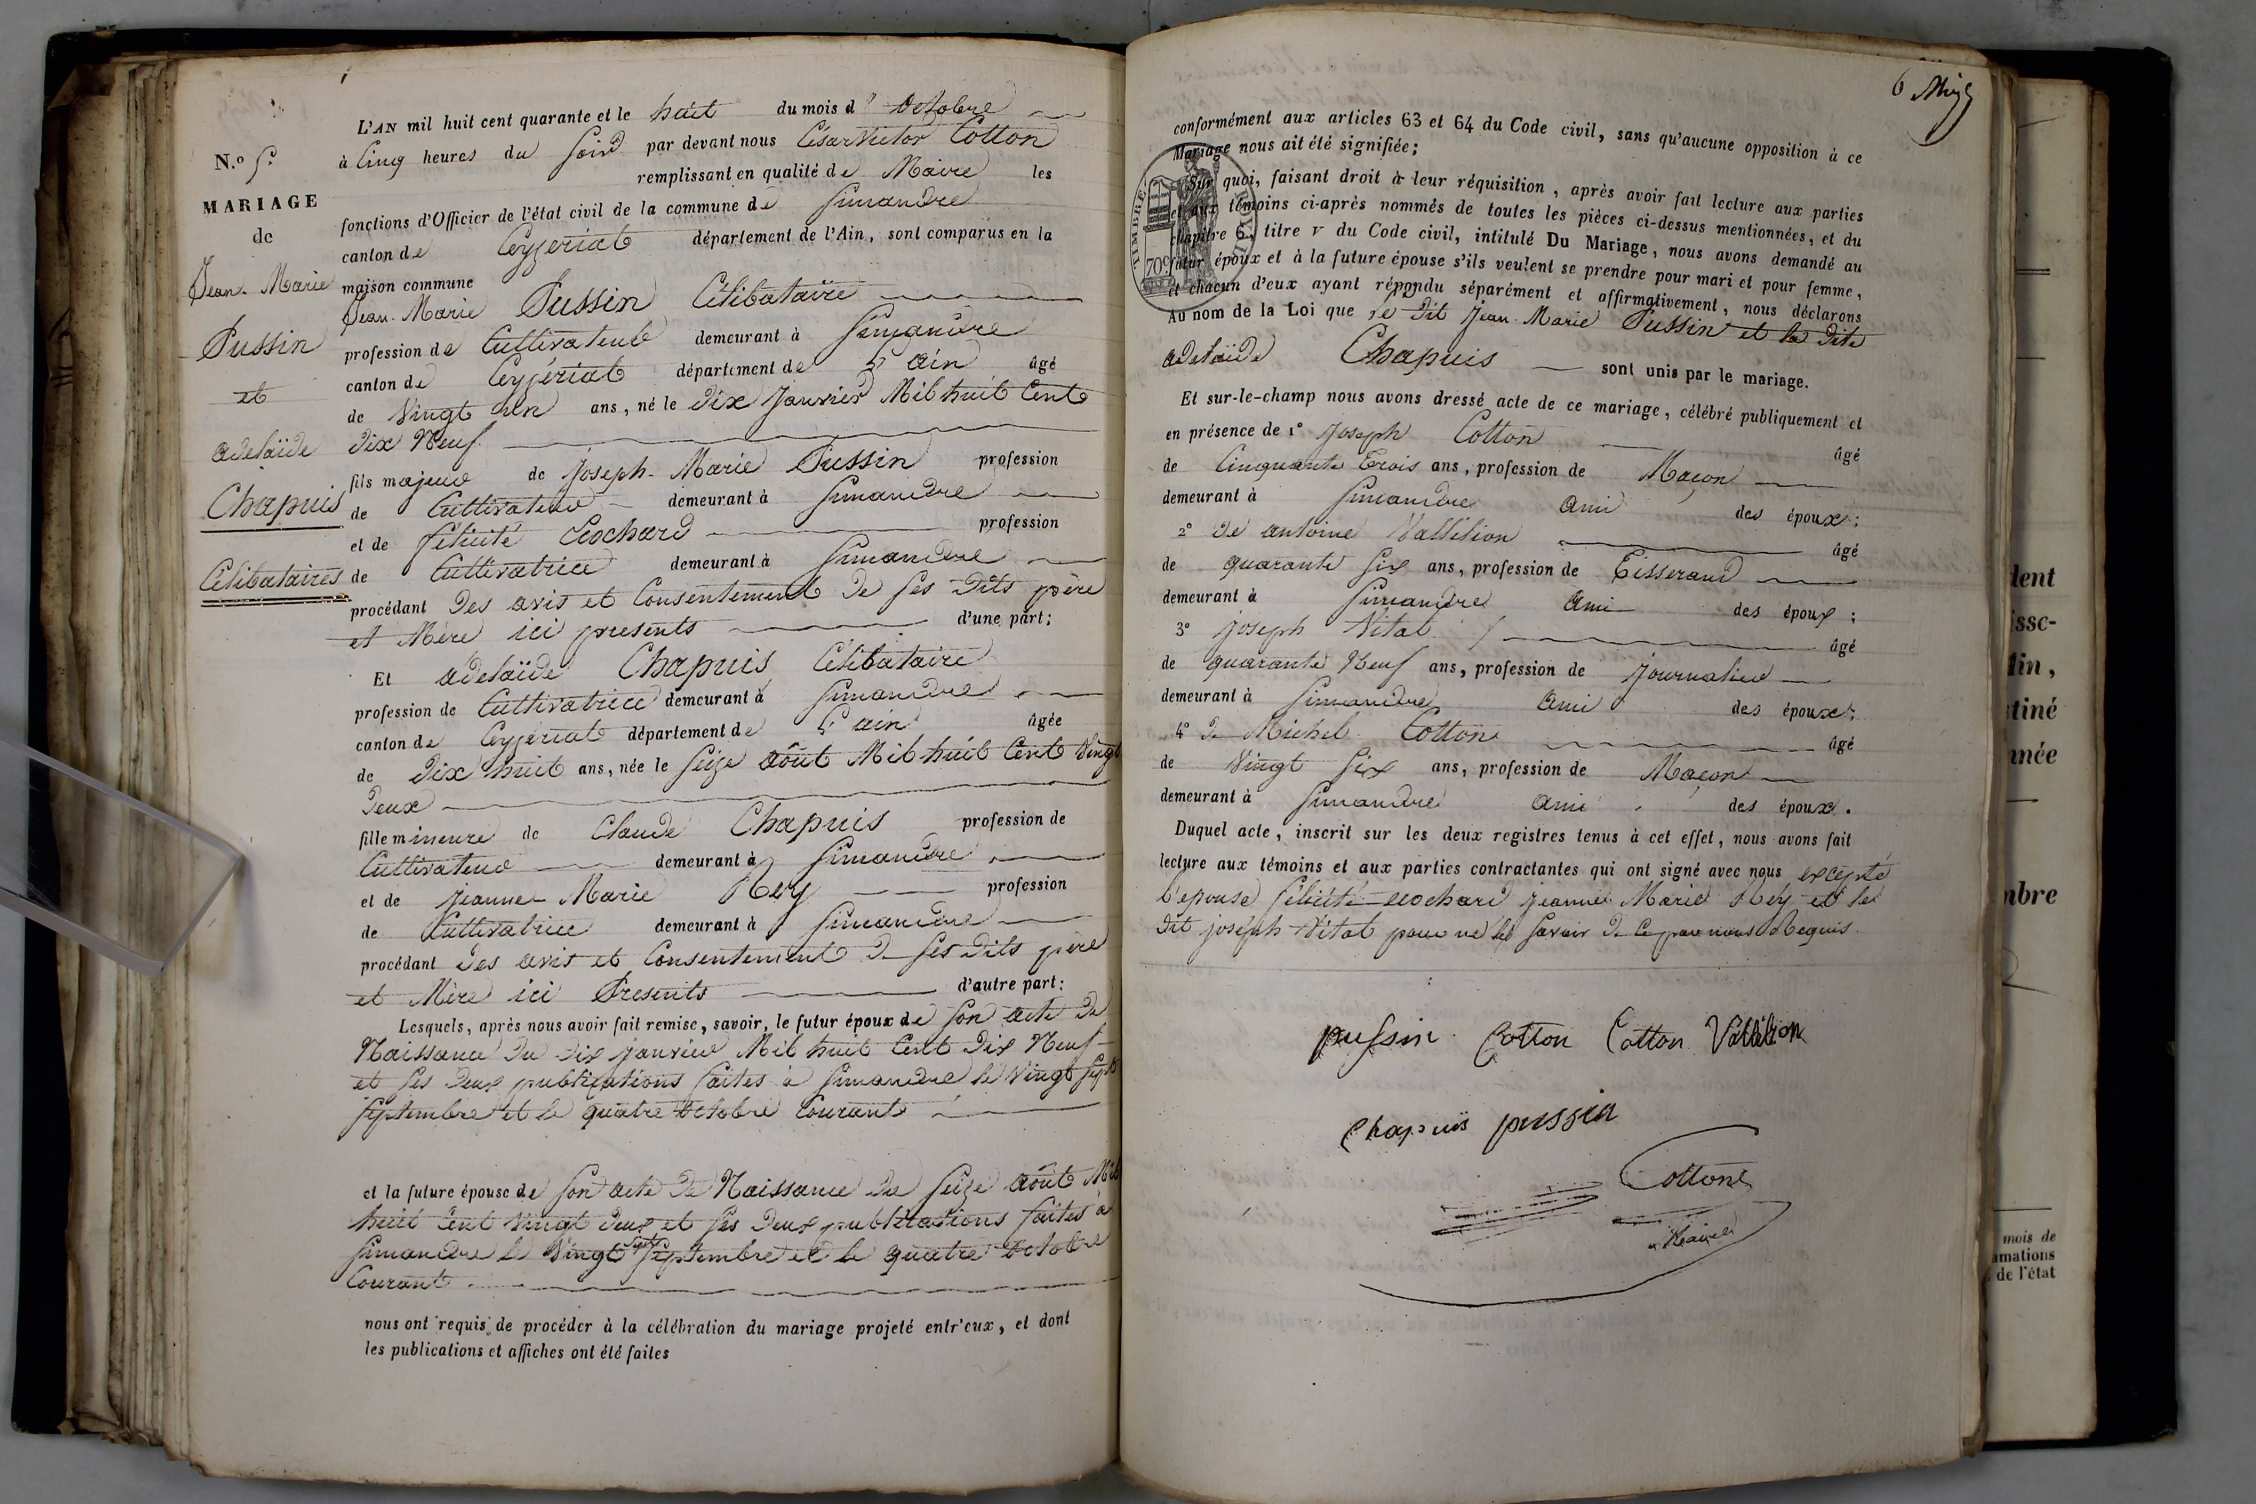 L'AN mil huit cent quarante et le huit du mois d' Octobre
N.o 5.
à Cinq heures du Soir par devant nous César Victor Cotton
remplissant en qualité de Maire les
MARIAGE
fonctions d'Officier de l'état civil de la commune de Simandre
de
canton de Ceyzeriat département de l'Ain, sont comparus en la
maison commune
Jean-Marie
Jean-Marie Pussin Célibataire
Pussin
profession de Cultivateur demeurant à Simandre
canton de Ceyzériat département de L'ain âgé
et
de Vingt un ans, né le dix Janvier Mil huit Cent
adelaïde
dix Neuf
fils majeur de Joseph-Marie Pussin profession
Chapuis
de Cultivateur demeurant à Simandre
et de félicité profession
Célibataires
de Cultivatrice demeurant à Simandre
procédant des avis et Consentement de ses dits père
et Mère ici presents d'une part;
Et adelaïde Chapuis Célibataire
profession de Cultivatrice demeurant à Simandre
canton de Ceyzeriat département de L'ain âgée
de dix huit ans, née le Seize août Mil huit Cent Vingt
deux
fille mineure de Claude Chapuis profession de
Cultivateur demeurant à Simandre
et de jeanne Marie Rey profession
de Cultivatrice demeurant à Simandre
procédant des avis et Consentement de ses dits père
et Mère ici Presents d'autre part:
Lesquels, après nous avoir fait remise, savoir, le futur époux de son acte de
Naissance du dix janvier Mil huit Cent dix Neuf
et ses deux publications faites à Simandre le Vingt sept
Septembre et le quatre octobre Courant
et la future épouse de son acte de Naissance du Seize août Mil
huit Cent Vingt deux et ses deux publications faites à
Simandre le Vingt sept Septembre et le quatre octobre
Courant
nous ont requis de procéder à la célébration du mariage projeté entr'eux, et dont
les publications et affiches ont été faites
6
conformément aux articles 63 et 64 du Code civil, sans qu'aucune opposition à ce
Mariage nous ait été signifiée;
Sur quoi, faisant droit à leur réquisition, après avoir fait lecture aux parties
et aux témoins ci-après nommés de toutes les pièces ci-dessus mentionnées, et du
chapitre 6, titre V du Code civil, intitulé Du Mariage, nous avons demandé au
futur époux et à la future épouse s'ils veulent se prendre pour mari et pour femme,
et chacun d'eux ayant répondu séparément et affirmativement, nous déclarons
Au nom de la Loi que le dit Jean-Marie Pussin et la dite
adelaïde Chapuis sont unis par le mariage.
TIMBRE ROYAL
70c
Et sur-le-champ nous avons dressé acte de ce mariage, célébré publiquement et
en présence de 1º Joseph Cotton âgé
de Cinquante trois ans, profession de Maçon
demeurant à Simandre ami des époux;
2º de antoine Vallélion âgé
de quarante six ans, profession de Tisserand
demeurant à Simandre ami des époux;
3º joseph Vitat âgé
de quarante Neuf ans, profession de journalier
demeurant à Simandre ami des époux;
4º de Michel Cotton âgé
de Vingt six ans, profession de Maçon
demeurant à Simandre ami des époux.
Duquel acte, inscrit sur les deux registres tenus à cet effet, nous avons fait
lecture aux témoins et aux parties contractantes qui ont signé avec nous excepté
l'epouse félicité jeanne Marie Rey et le
dit joséph Vitat pour ne le savoir de ce par nous Requis.
pussin Cotton Cotton Vallélion
Chapuis pussin
Cotton
Maire
dent
issc-
lin,
tiné
nnée
mbre
mois de
amations
de l'état